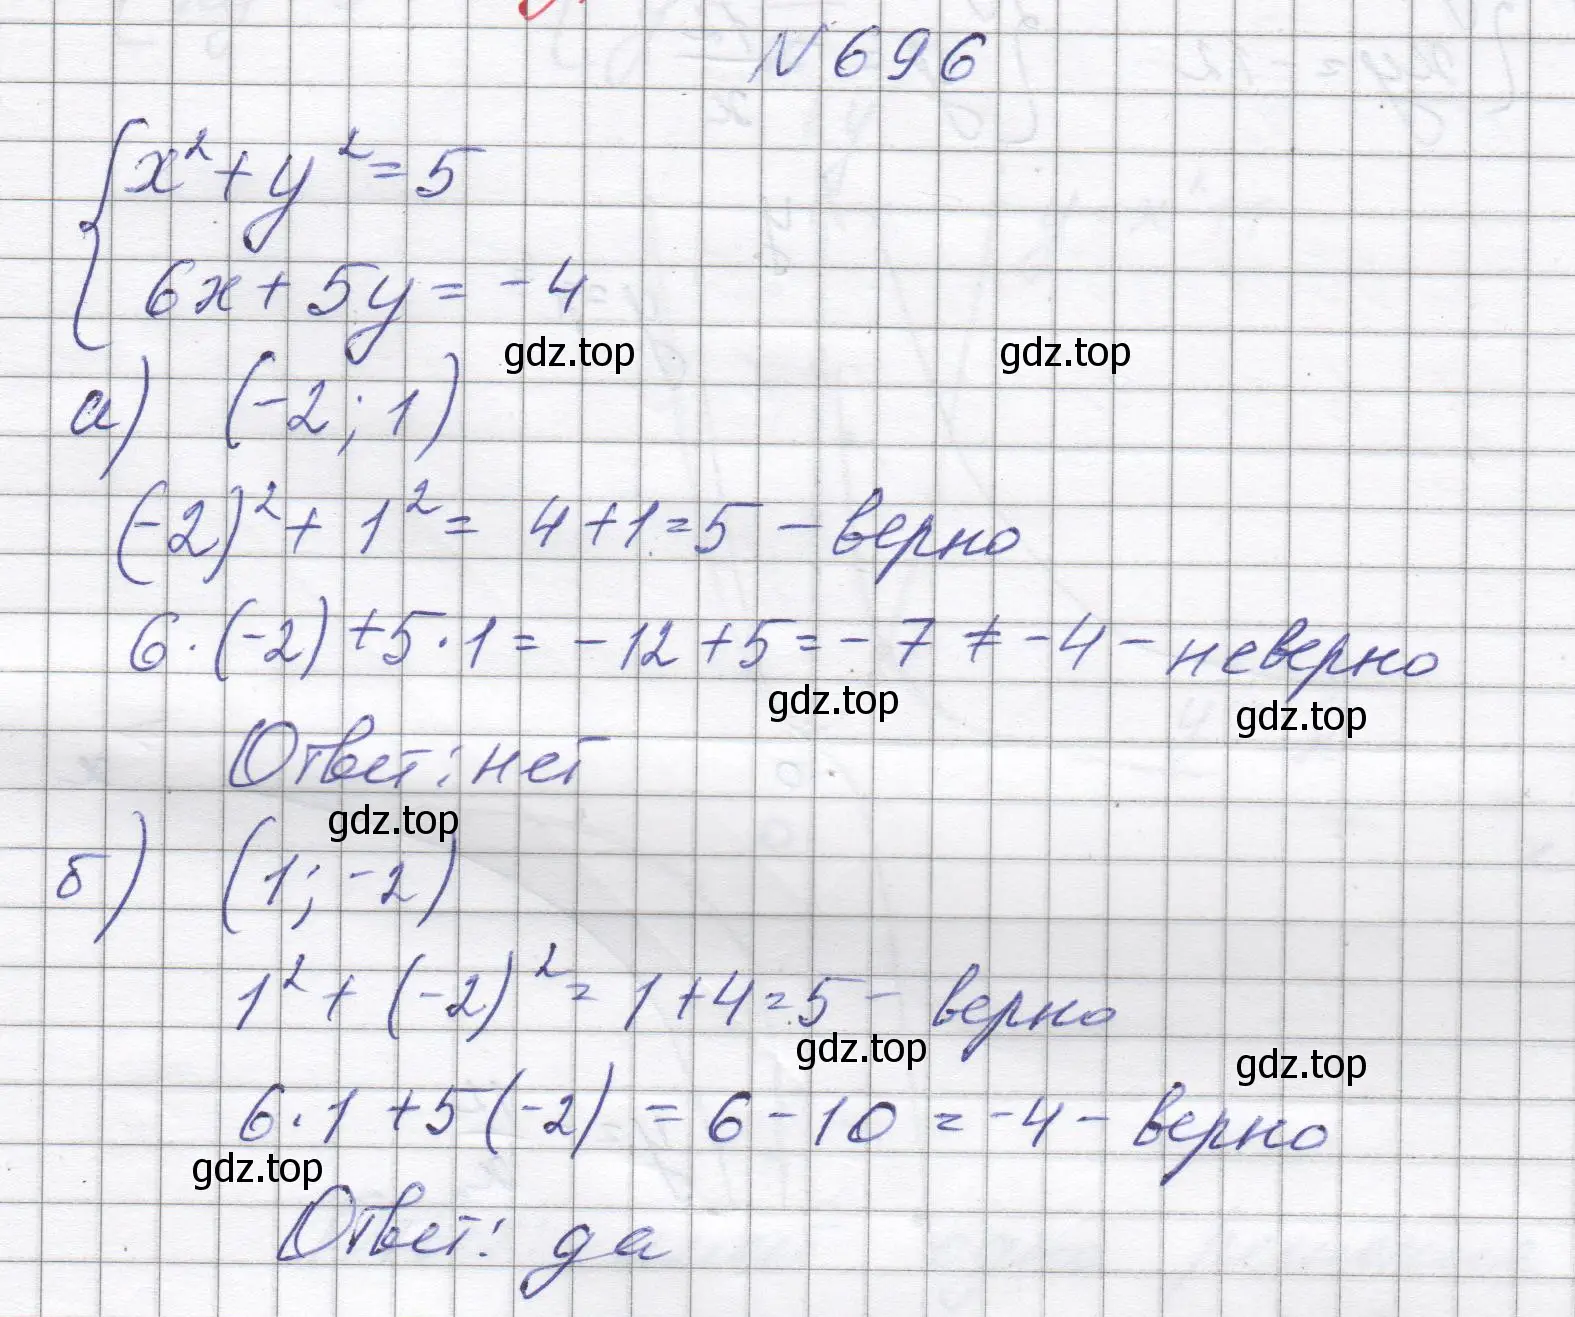 N 696
{ x² + y² = 5
6x + 5y = -4
gdz.top gdz.top
а) (-2; 1)
(-2)² + 1² = 4 + 1 = 5 - верно
6 · (-2) + 5 · 1 = -12 + 5 = -7 ≠ -4 - неверно
gdz.top gdz.top
Ответ: нет
gdz.top
б) (1; -2)
1² + (-2)² = 1 + 4 = 5 - верно
gdz.top gdz.top
6 · 1 + 5(-2) = 6 - 10 = -4 - верно
gdz.top
Ответ: да